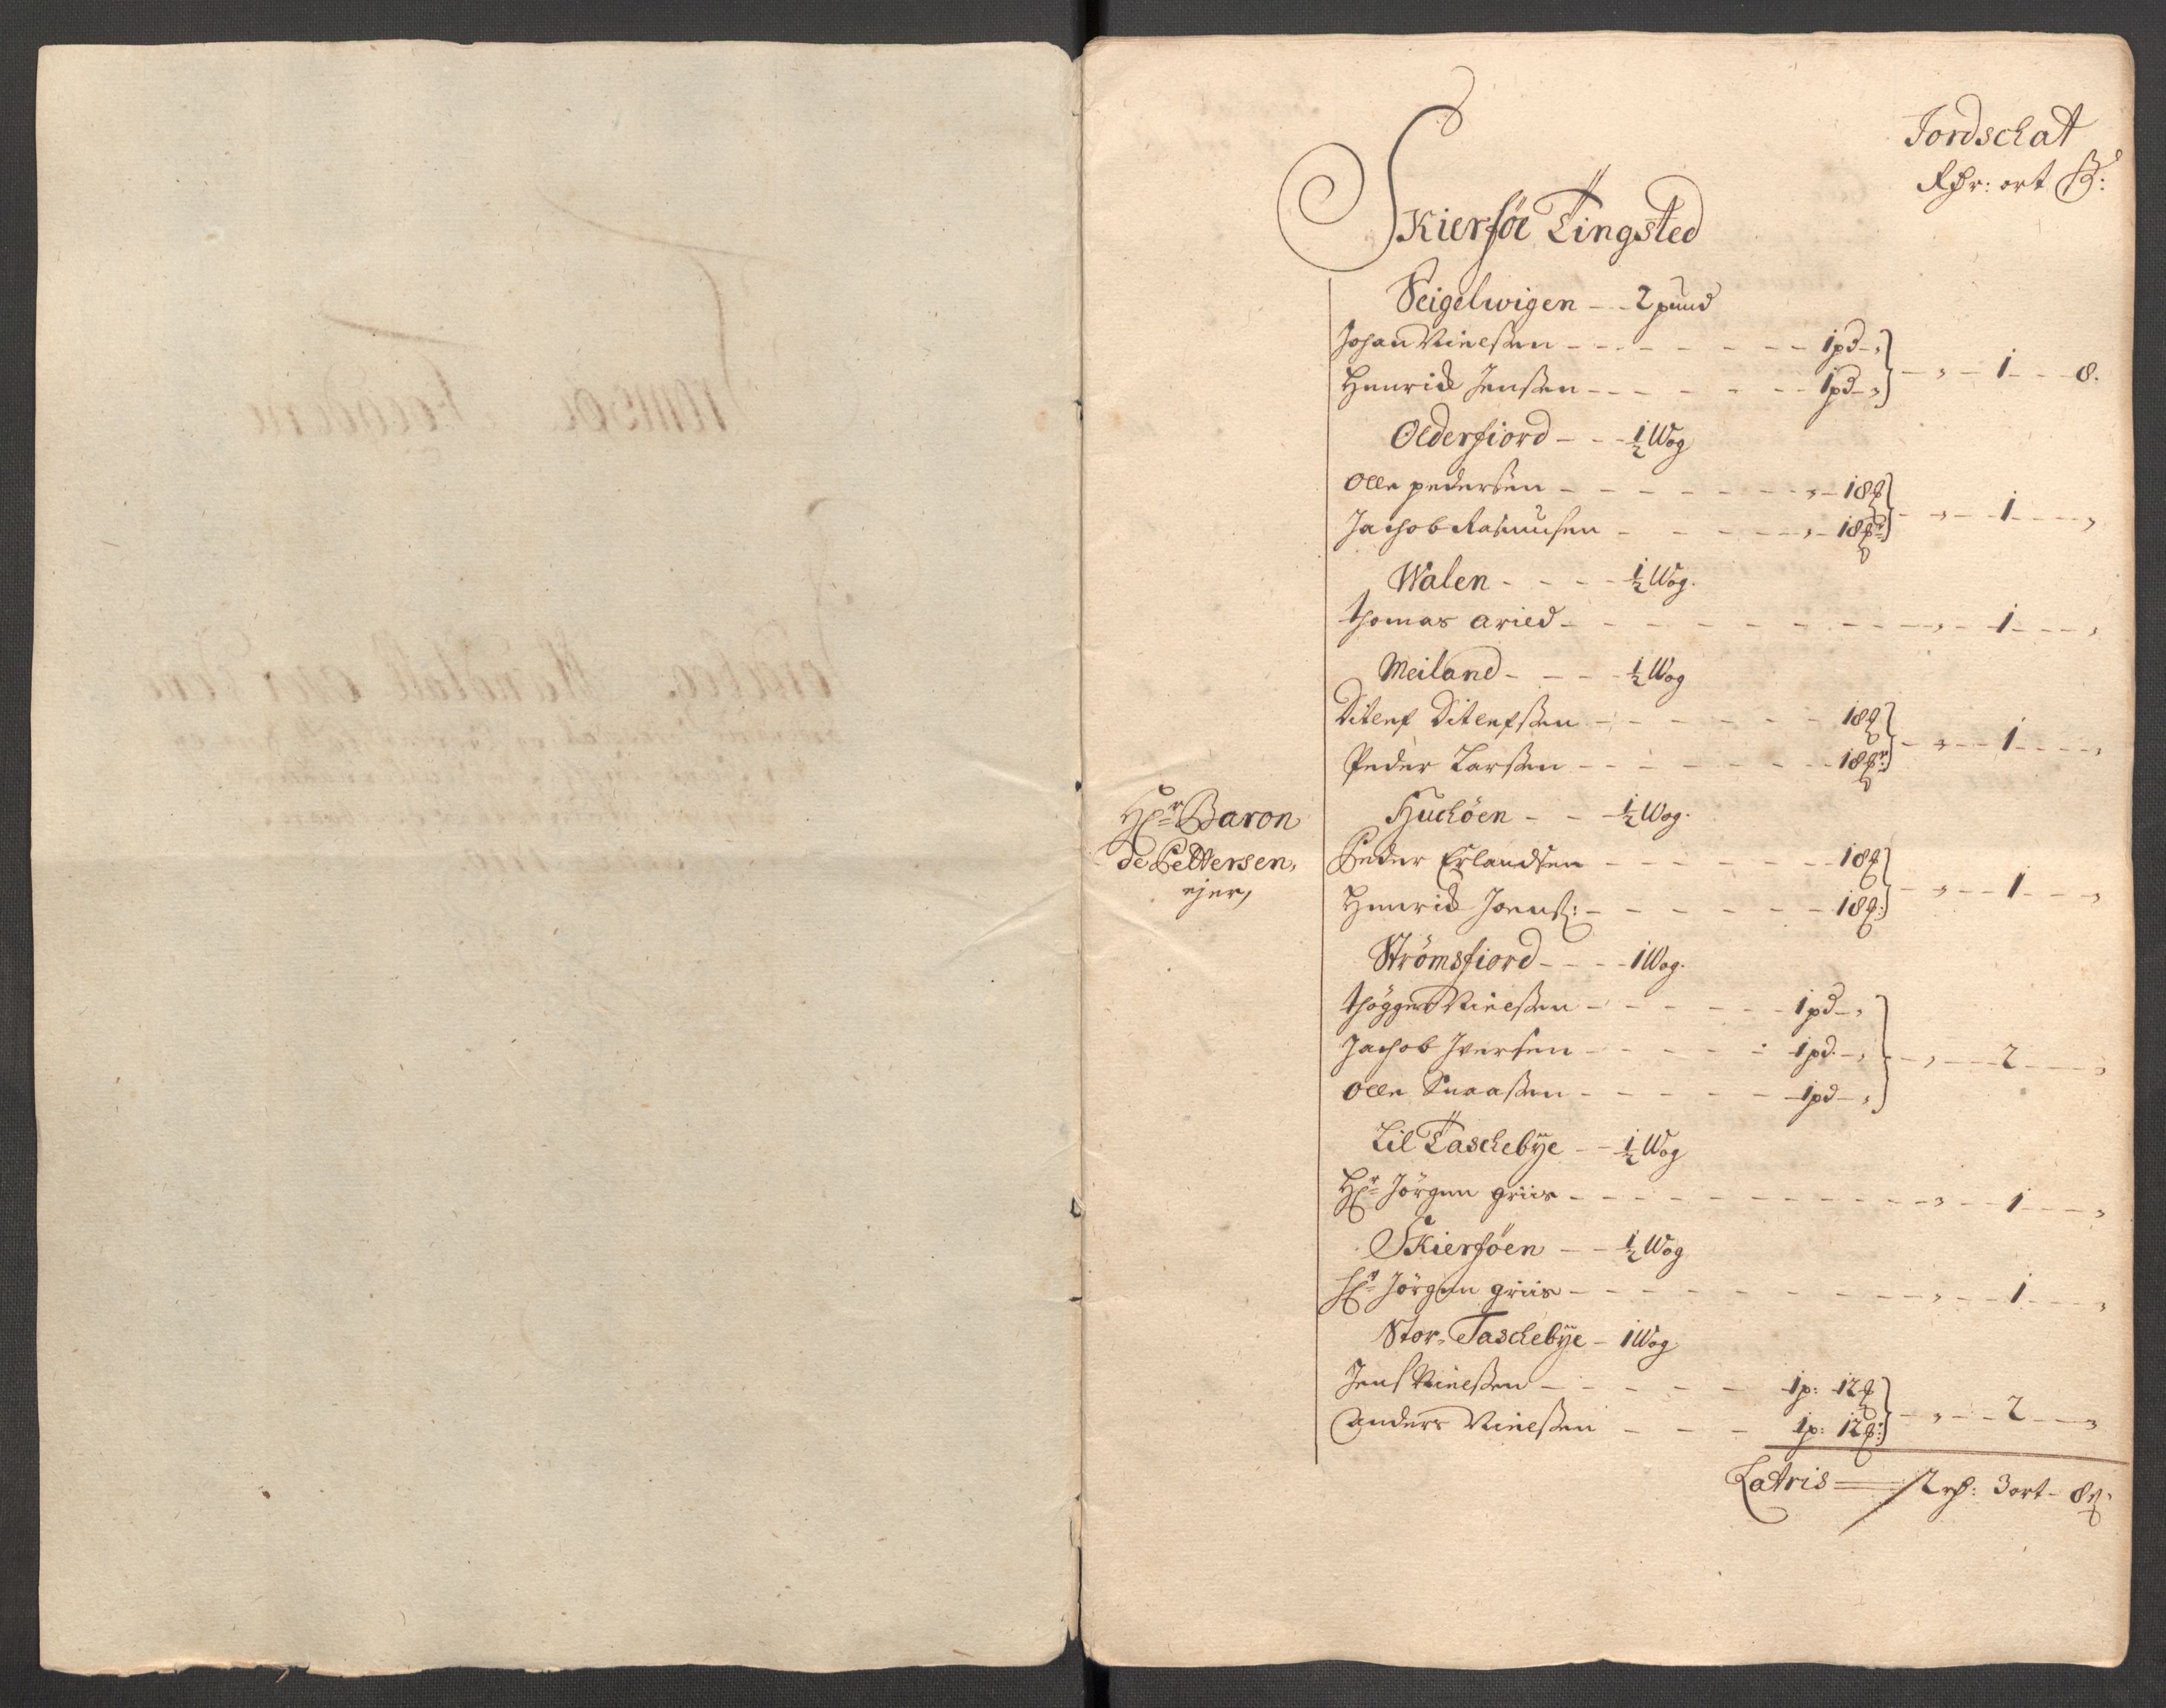 Jordschat
Rdr: ort ß:
Skierföe Tingsted
Seigelwigen - - 2 pund
Johan Nielssen - - - - - - 1 pd - „
Henrick Jenssen - - - - - - 1 pd - „ } - „ - 1 - - 8.
Olderfiord - - - ½ Wog
Olle pedersen - - - - - - - „ - 18 ℔
Jachob Rasmusen - - - - - „ - 18 ℔ } - „ - 1 - - - „
Walen - - - - ½ Wog.
Thomas Aried - - - - - - - - - - „ - 1 - - - „
Meiland - - - - ½ Wog
Ditlef Ditlefssen - - - - - - 18 ℔
Peder Larssen - - - - - - - 18 ℔ } - „ - 1 - - - „
Hr Baron
de Pettersen,
ejer,
Huchöen - - - ½ Wog.
Peder Erlandsen - - - - - - - 18 ℔
Henrick Joens: - - - - - - - 18 ℔ } - „ - 1 - - - „
Strömsfiord - - - - 1 Wog.
Thögger Nielssen - - - - - - 1 pd - „
Jachob Iversen - - - - - 1 pd - „
Olle Knudssen - - - - - - 1 pd - „ } - „ - 2 - - - „
Lil Taschebÿe - - ½ Wog
Hr Jörgen griis - - - - - - - - - - „ - 1 - - - „
Skierföen - - ½ Wog
Hr Jörgen griis - - - - - - - - - - „ - 1 - - - „
Stor Taschebÿe - 1 Wog
Jens Nielssen - - - - - - 1 p: 12 ℔
Anders Nielssen - - - 1 p: 12 ℔ } - „ - 2 - - - „
Latris 2 rd: 3 ort - 8 ß